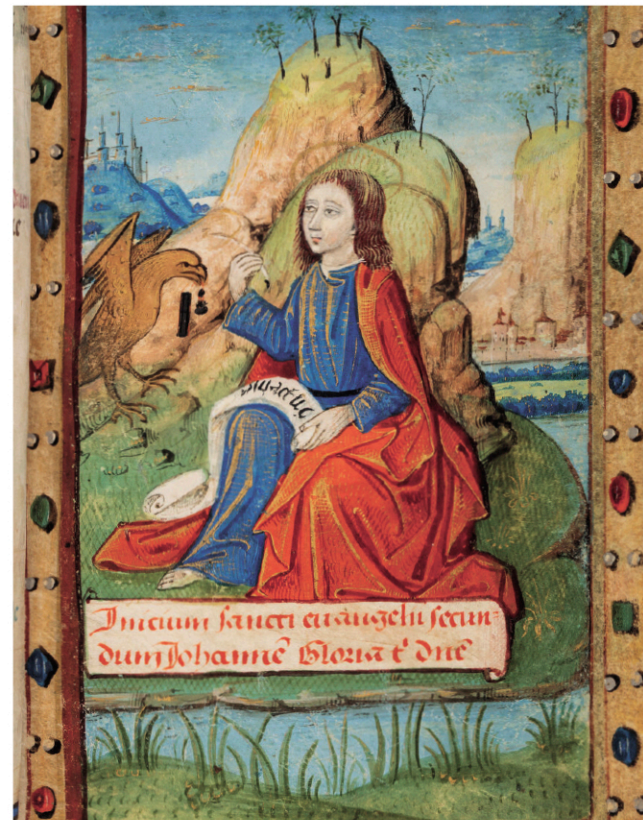 Inicium sancti euangelii secun-
dum Johannē Gloria t͛ dn̄e